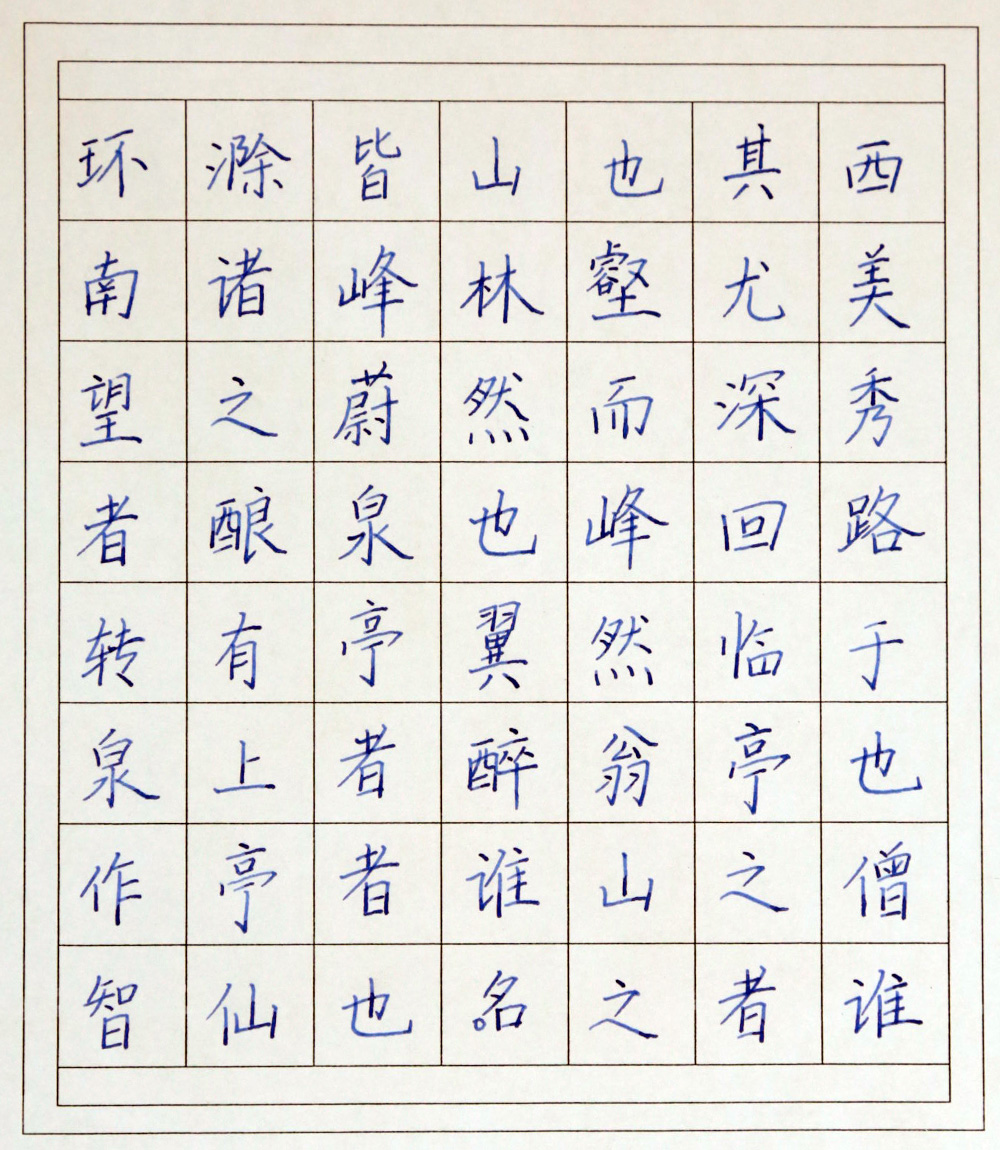 环滁皆山也其西
南诸峰林壑尤美
望之蔚然而深秀
者酿泉也峰回路
转有亭翼然临于
泉上者醉翁亭也
作亭者谁山之僧
智仙也。名之者谁